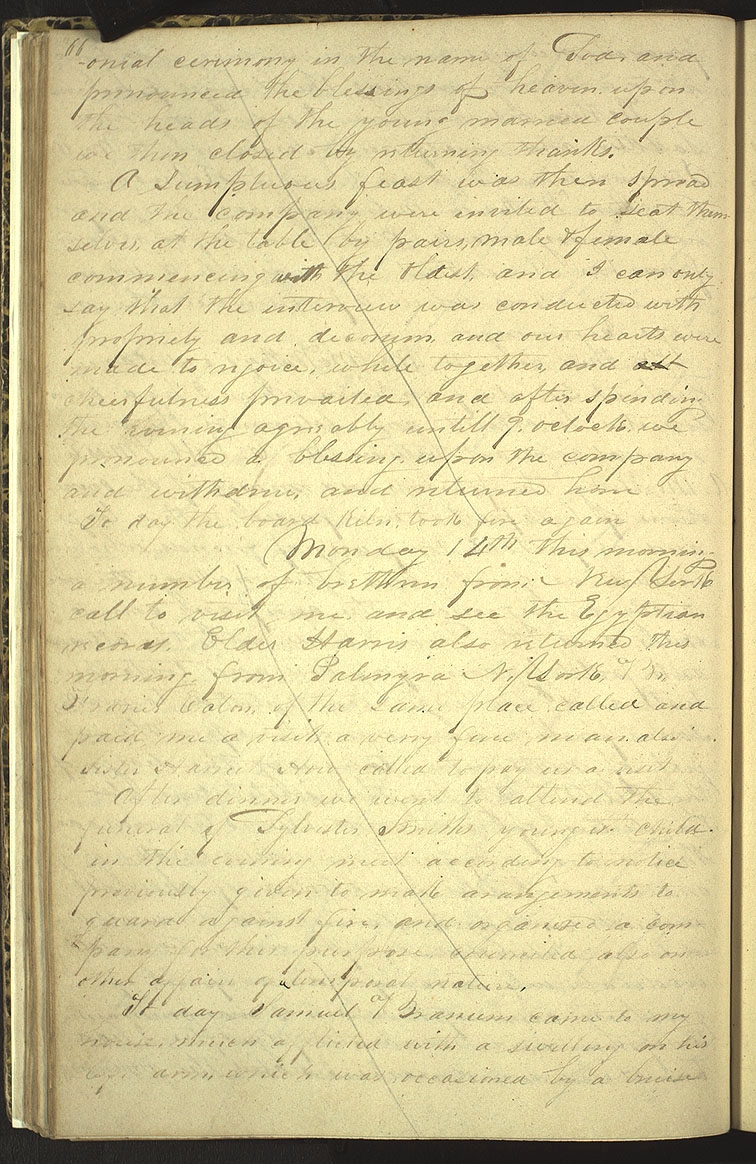 66
-onial ceremony in the name of God, and
pronounced the blessings of heaven upon
the heads of the young married couple
we then closed by returning thanks.
A Sumptuous feast was then spread
and the company were invited to seat them-
selves, at the table by pairs, male & female
commencing with the oldest, and I can only
say that the interview was conducted with
propriety and decorum, and our hearts were
made to rejoice, while together, and all
cheerfulness prevailed, and after spending
the evening agreeably untill 9. oclock, we
pronounced a blessing, upon the company
and withdrew, and returned home
To day the board Kiln, took fire again
Monday 14th this morning
a number of brethren from New York
call to visit me, and see the Egyptian
records. Elder Harris also returned this
morning from Palmyra N. York, Br.
Frazier Eaton, of the same place called and
paid me a visit, a very fine man also
Sister Harriet Howe called to pay us a visit
After dinner we went to attend the
funeral of Sylvester Smiths youngest child.
in the evening meet according to notice
previously given to make arangements to
guard against fire, and organised a com-
pany for this purpose, counciled also on
other affairs of a temporal nature,
To day Samuel Branum came to my
house, much afflicted with a swelling on his
arm, which was occasioned by a bruise